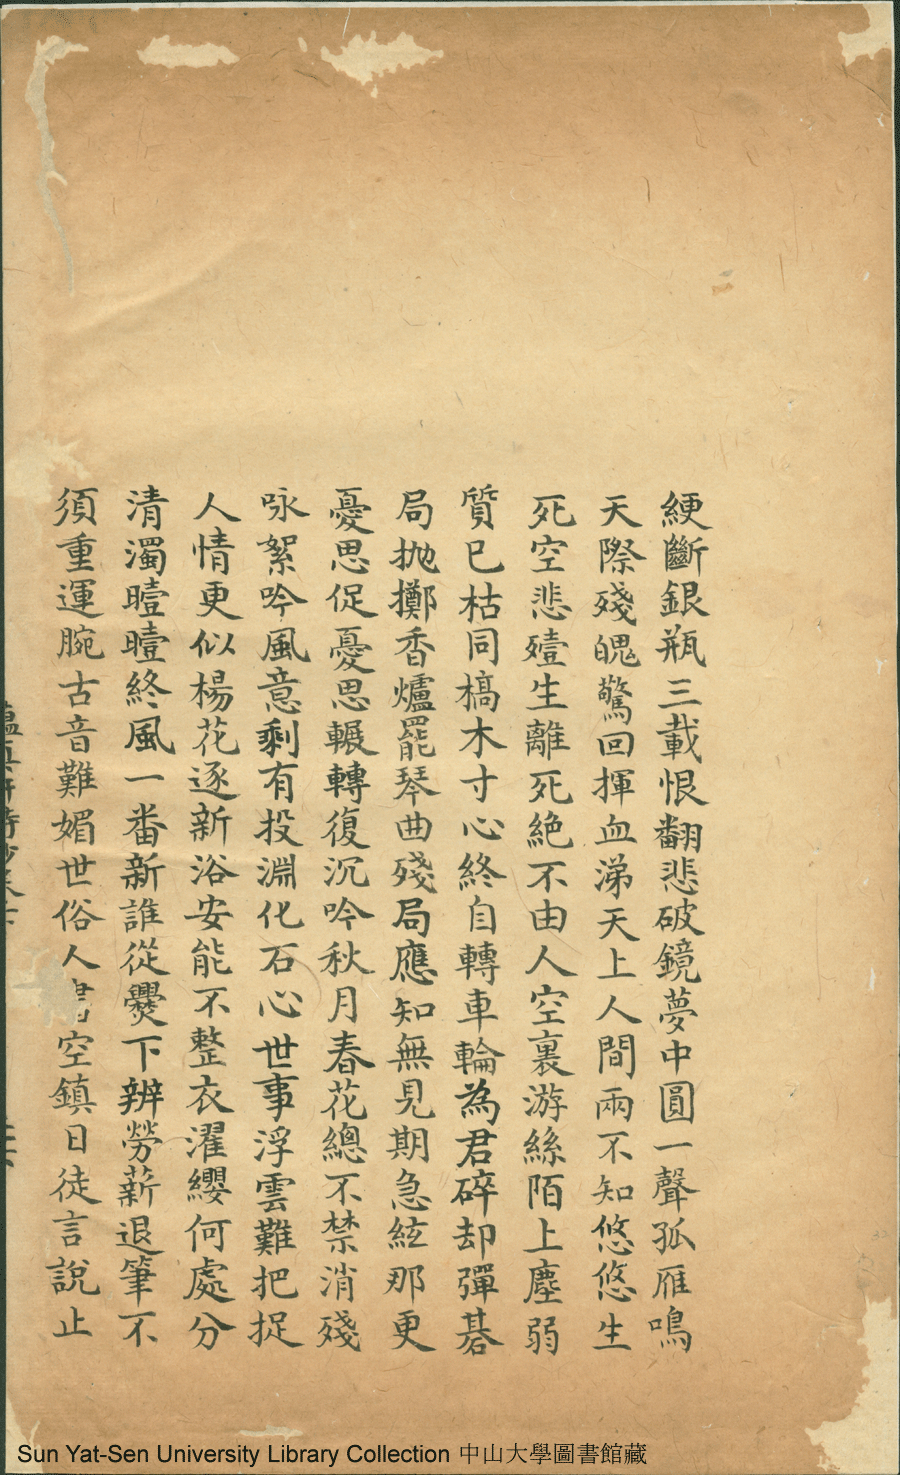 綆斷銀瓶三載恨翻悲破鏡夢中圓一聲孤雁鳴
天際殘魄驚回揮血涕天上人間兩不知悠悠生
死空悲殪生離死絶不由人空裏游絲陌上塵弱
質已枯同槁木寸心終自轉車輪為君碎却彈碁
局拋擲香爐罷琴曲殘局應知無見期急絃那更
憂思促憂思輾轉復沉吟秋月春花總不禁消殘
咏絮吟風意剩有投淵化石心世事浮雲難把捉
人情更似楊花逐新浴安能不整衣濯纓何處分
清濁曀曀終風一番新誰從爨下辨勞薪退筆不
須重運腕古音難媚世俗人書空鎮日徒言說止
Sun Yat-Sen University Library Collection 中山大學圖書館藏